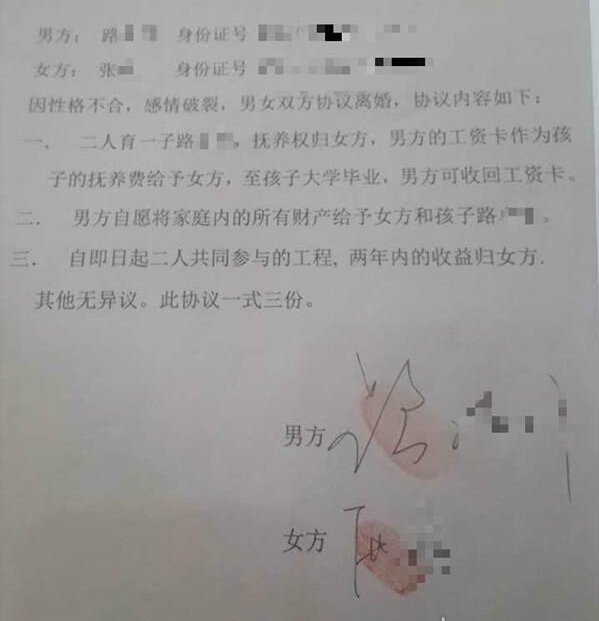 男方： 路 身份证号
女方： 张 身份证号
因性格不合，感情破裂，男女双方协议离婚，协议内容如下：
一． 二人育一子路 ，抚养权归女方，男方的工资卡作为孩
子的抚养费给予女方，至孩子大学毕业，男方可收回工资卡。
二． 男方自愿将家庭内的所有财产给予女方和孩子路 。
三． 自即日起二人共同参与的工程, 两年内的收益归女方.
其他无异议。此协议一式三份。
男方
女方